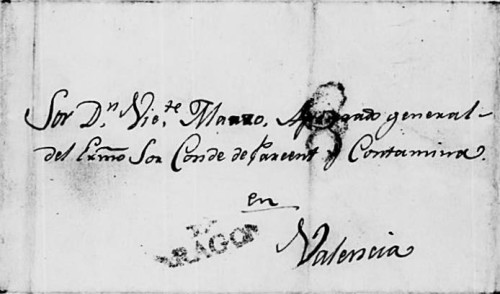 Sor D.n Vic.te Manzo, Apoderado general
del Exmo Sor Conde de Parcent y Contamina
en
Valencia
ARAGON